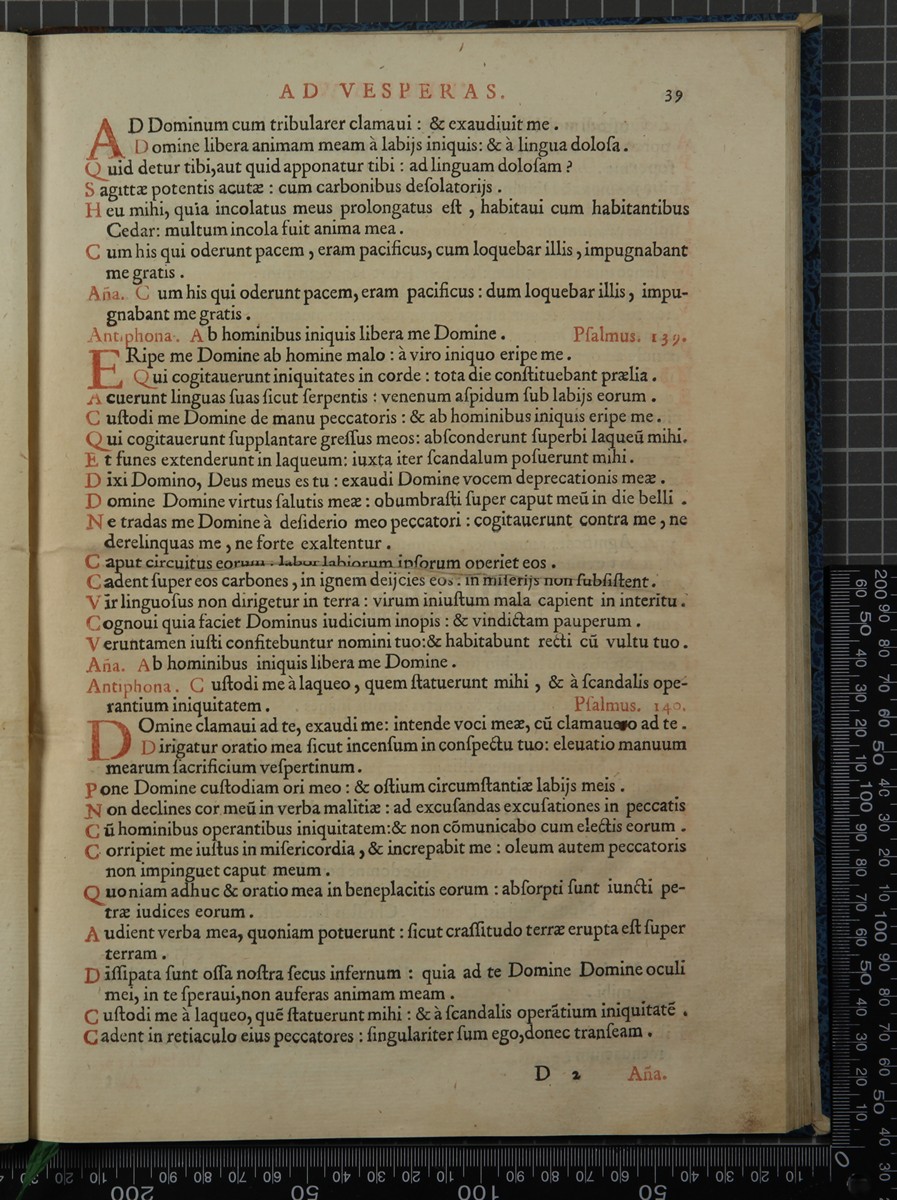 AD VESPERAS. 39
AD Dominum cum tribularer clamaui : & exaudiuit me .
Domine libera animam meam à labijs iniquis: & à lingua doloſa .
Quid detur tibi,aut quid apponatur tibi : ad linguam doloſam ?
Sagittæ potentis acutæ : cum carbonibus deſolatorijs .
Heu mihi, quia incolatus meus prolongatus eſt , habitaui cum habitantibus
Cedar: multum incola fuit anima mea .
Cum his qui oderunt pacem , eram pacificus, cum loquebar illis , impugnabant
me gratis .
Aña. Cum his qui oderunt pacem, eram pacificus : dum loquebar illis , impu-
gnabant me gratis .
Antiphona. Ab hominibus iniquis libera me Domine . Pſalmus. 139.
ERipe me Domine ab homine malo : à viro iniquo eripe me .
Qui cogitauerunt iniquitates in corde : tota die conſtituebant prælia .
Acuerunt linguas ſuas ſicut ſerpentis : venenum aſpidum ſub labijs eorum .
Cuſtodi me Domine de manu peccatoris : & ab hominibus iniquis eripe me .
Qui cogitauerunt ſupplantare greſſus meos: abſconderunt ſuperbi laqueũ mihi.
Et funes extenderunt in laqueum: iuxta iter ſcandalum poſuerunt mihi .
Dixi Domino, Deus meus es tu : exaudi Domine vocem deprecationis meæ .
Domine Domine virtus ſalutis meæ : obumbraſti ſuper caput meũ in die belli .
Ne tradas me Domine à deſiderio meo peccatori : cogitauerunt contra me , ne
derelinquas me , ne forte exaltentur .
Caput circuitus eorum : labor labiorum ipſorum operiet eos .
Cadent ſuper eos carbones , in ignem deijcies eos : in miſerijs non ſubſiſtent .
Vir linguoſus non dirigetur in terra : virum iniuſtum mala capient in interitu .
Cognoui quia faciet Dominus iudicium inopis : & vindictam pauperum .
Veruntamen iuſti confitebuntur nomini tuo:& habitabunt recti cũ vultu tuo .
Aña. Ab hominibus iniquis libera me Domine .
Antiphona. Cuſtodi me à laqueo , quem ſtatuerunt mihi , & à ſcandalis ope-
rantium iniquitatem . Pſalmus. 140.
DOmine clamaui ad te, exaudi me: intende voci meæ, cũ clamauero ad te .
Dirigatur oratio mea ſicut incenſum in conſpectu tuo: eleuatio manuum
mearum ſacrificium veſpertinum .
Pone Domine cuſtodiam ori meo : & oſtium circumſtantiæ labijs meis .
Non declines cor meũ in verba malitiæ : ad excuſandas excuſationes in peccatis
Cũ hominibus operantibus iniquitatem:& non cõmunicabo cum electis eorum .
Corripiet me iuſtus in miſericordia , & increpabit me : oleum autem peccatoris
non impinguet caput meum .
Quoniam adhuc & oratio mea in beneplacitis eorum : abſorpti ſunt iuncti pe-
træ iudices eorum .
Audient verba mea, quoniam potuerunt : ſicut craſſitudo terræ erupta eſt ſuper
terram .
Diſſipata ſunt oſſa noſtra ſecus infernum : quia ad te Domine Domine oculi
mei, in te ſperaui,non auferas animam meam .
Cuſtodi me à laqueo, quẽ ſtatuerunt mihi : & à ſcandalis operãtium iniquitatẽ .
Cadent in retiaculo eius peccatores : ſingulariter ſum ego,donec tranſeam .
D 2 Aña.